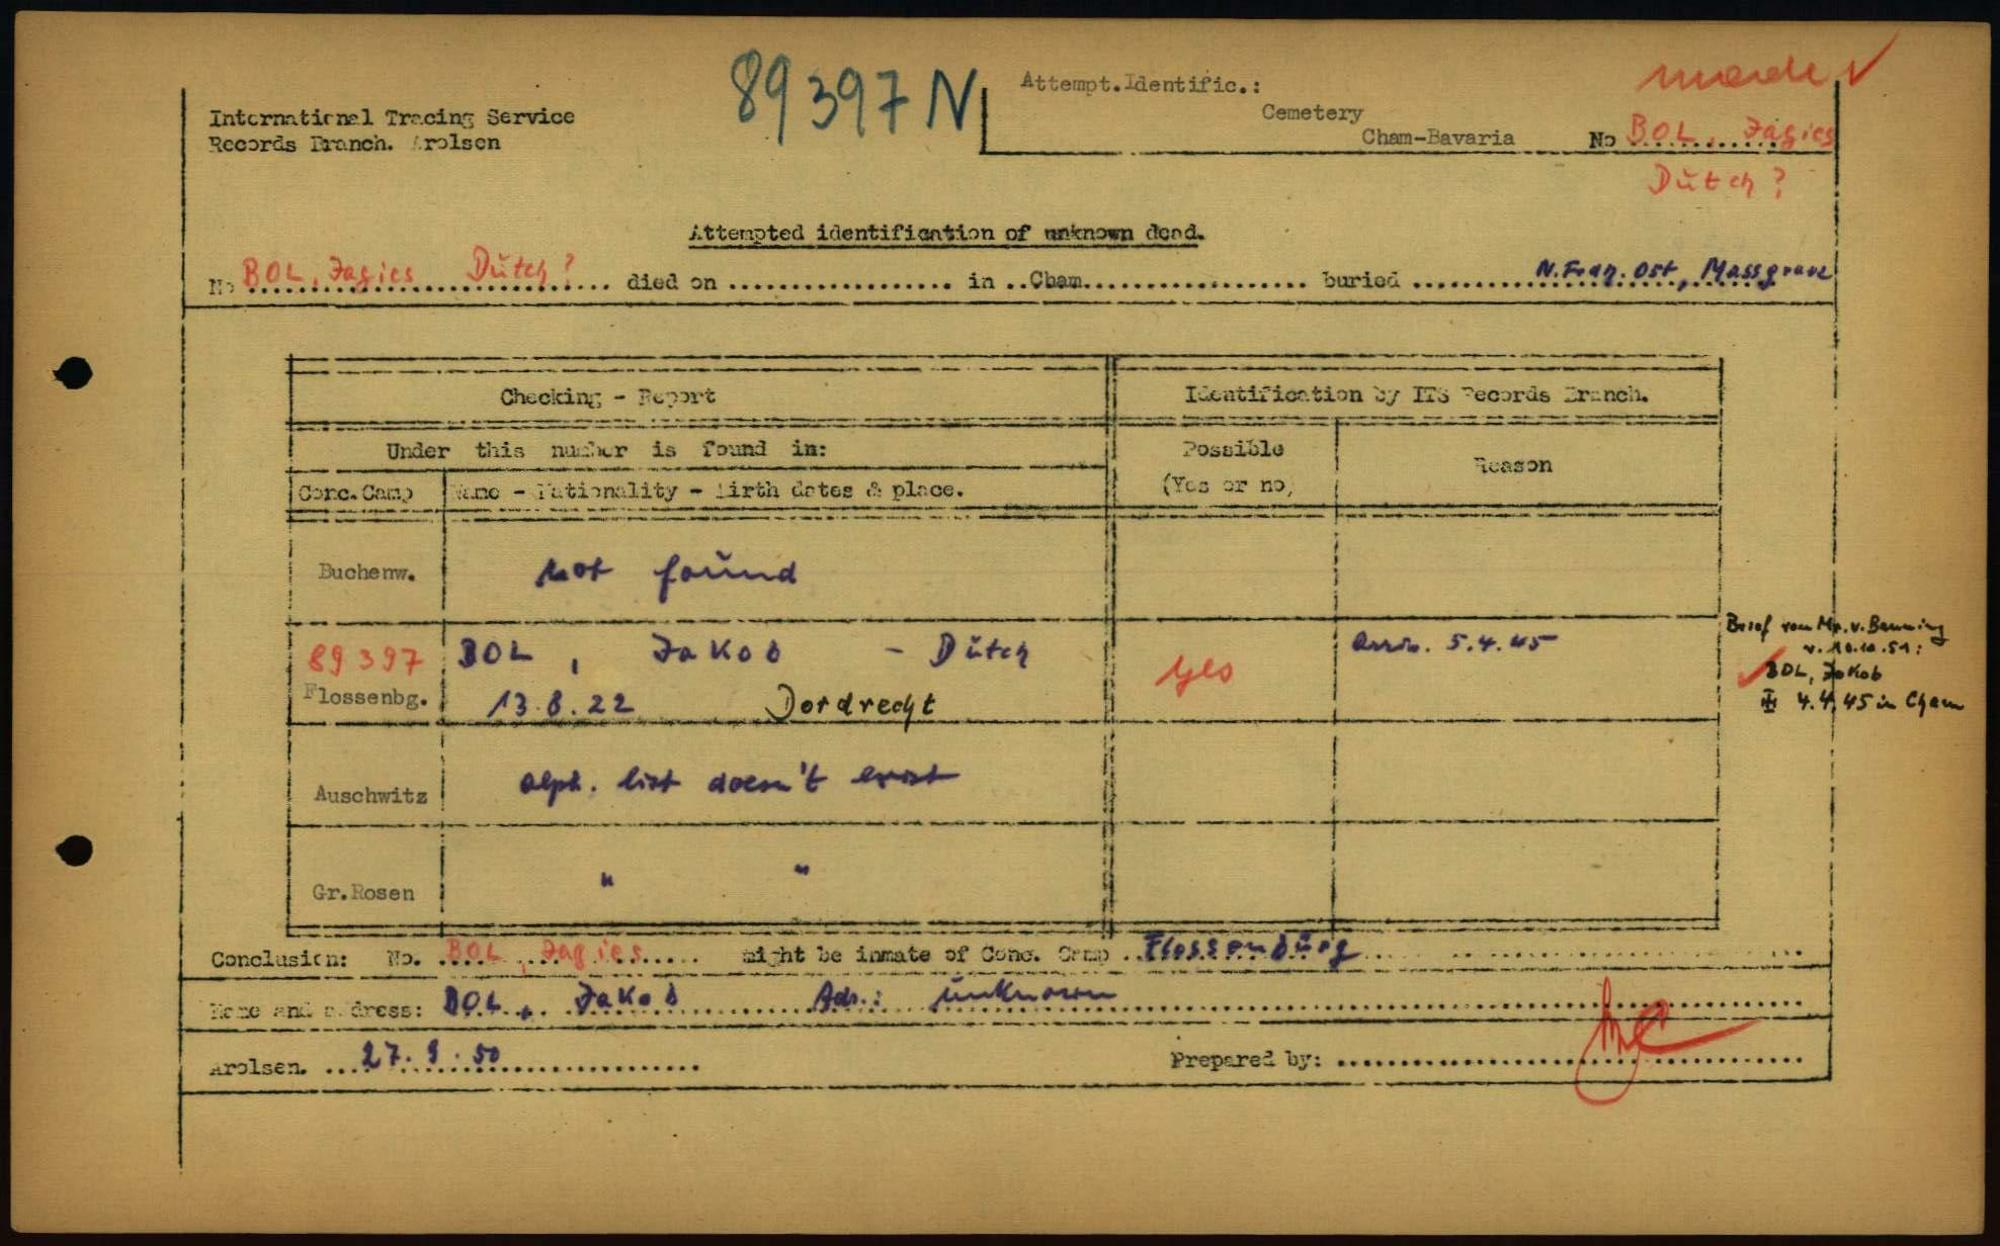 89397 N
made
International Tracing Service
Records Branch. Arolsen
Attempt.Identific.:
Cemetery
Cham-Bavaria
No BOL, Jagies
Dutch?
Attempted identification of unknown dead.
No BOL, Jagies Dutch? died on .................. in ..Cham.................. buried N. Fran. Ost, Massgrave
Checking - Report
Identification by ITS Records Branch.
Under this number is found in:
Possible
(Yes or no)
Reason
Conc.Camp
Name - Nationality - Birth dates & place.
Buchenw.
not found
89397
Flossenbg.
BOL, Jakob - Dutch
13.8.22 Dordrecht
yes
arriv. 5.4.45
Brief von Mr. v. Banning
v. 10.10.51:
BOL, Jakob
4.4.45 in Cham
Auschwitz
alph. list doesn't exist
Gr.Rosen
" "
Conclusion: No. BOL, Jagies might be inmate of Conc. Camp Flossenburg
Name and address: BOL, Jakob Adr.: unknown
Arolsen. 27.9.50
Prepared by: